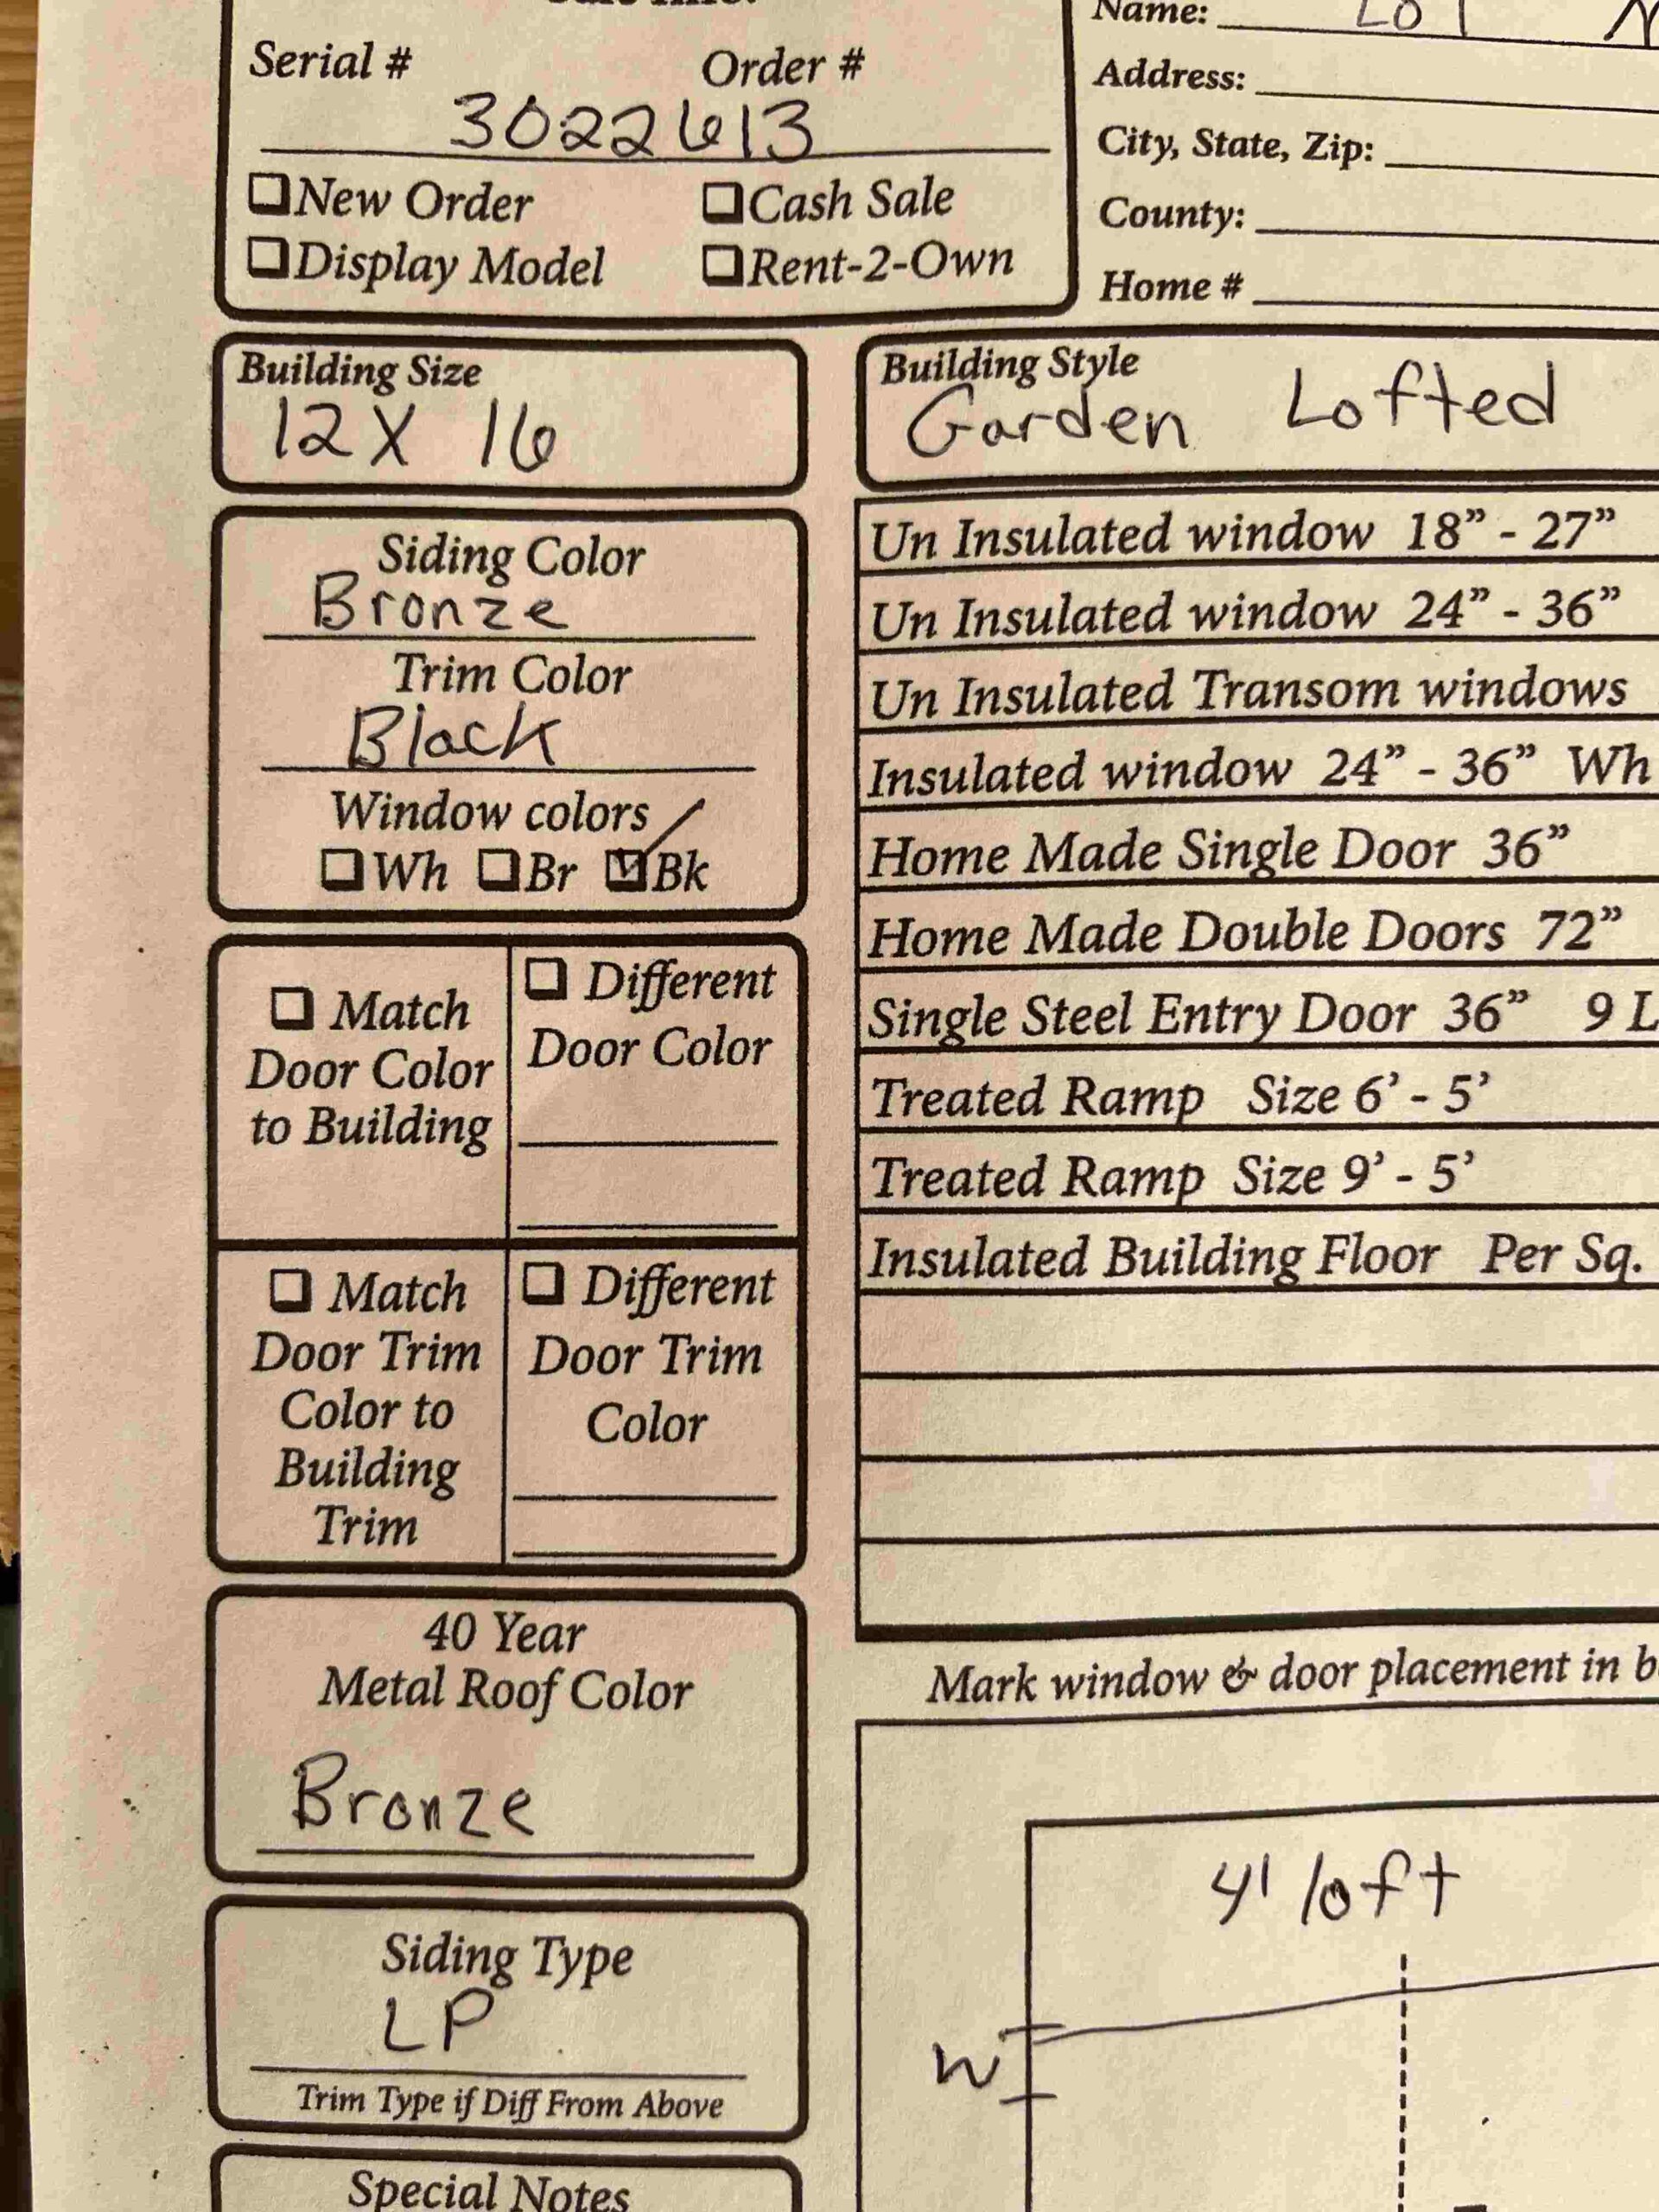 Name: Lot
Serial # Order #
3022613
Address:
City, State, Zip:
❑New Order ❑Cash Sale
County:
❑Display Model ❑Rent-2-Own
Home #
Building Size
12 X 16
Building Style
Garden Lofted
Siding Color
Bronze
Trim Color
Black
Window colors
❑Wh ❑Br ☑Bk
Un Insulated window 18” - 27”
Un Insulated window 24” - 36”
Un Insulated Transom windows
Insulated window 24” - 36” Wh
Home Made Single Door 36”
Home Made Double Doors 72”
Single Steel Entry Door 36” 9 L
Treated Ramp Size 6’ - 5’
Treated Ramp Size 9’ - 5’
Insulated Building Floor Per Sq.
❑ Match
Door Color
to Building
❑ Different
Door Color
❑ Match
Door Trim
Color to
Building
Trim
❑ Different
Door Trim
Color
40 Year
Metal Roof Color
Bronze
Mark window & door placement in b
4' loft
W
Siding Type
LP
Trim Type if Diff From Above
Special Notes